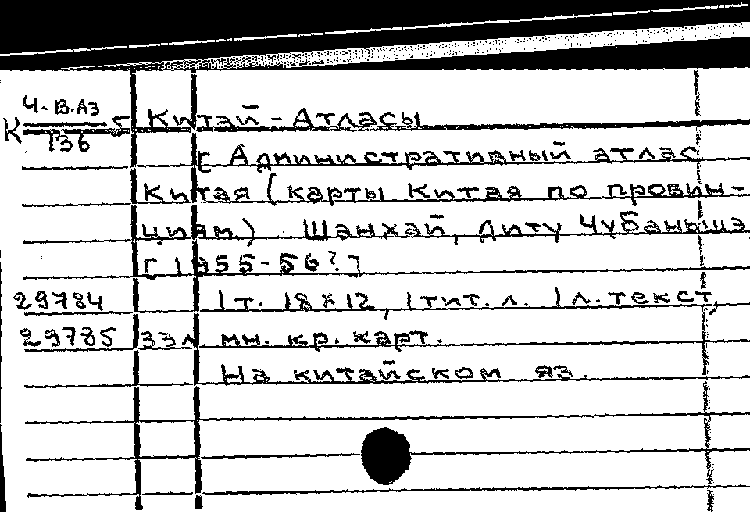 Ч-В.АЗ
К 136 5 Китай - Атласы
[Административный атлас
Китая (карты Китая по провин-
циям) Шанхай, Диту Чубаньшэ
[1955-56?]
29784 1 т. 18x12, 1 тит. л. 1 л. текст,
29785 33 л мн. кр. карт.
На китайском яз.